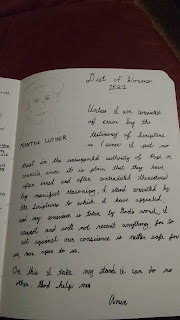 Diet of Worms
1521
Unless I am convicted
of error by the
testimony of Scripture
or (since I put no
MARTIN LUTHER
trust in the unsupported authority of Pope or
councils, since it is plain that they have
often erred and often contradicted themselves)
by manifest reasoning, I stand convicted by
the Scriptures to which I have appealed,
and my conscience is taken by God's word, I
cannot and will not recant anything, for to
act against our conscience is neither safe for
us, nor open to us.
On this I take my stand. I can do no
other. God help me.
Amen